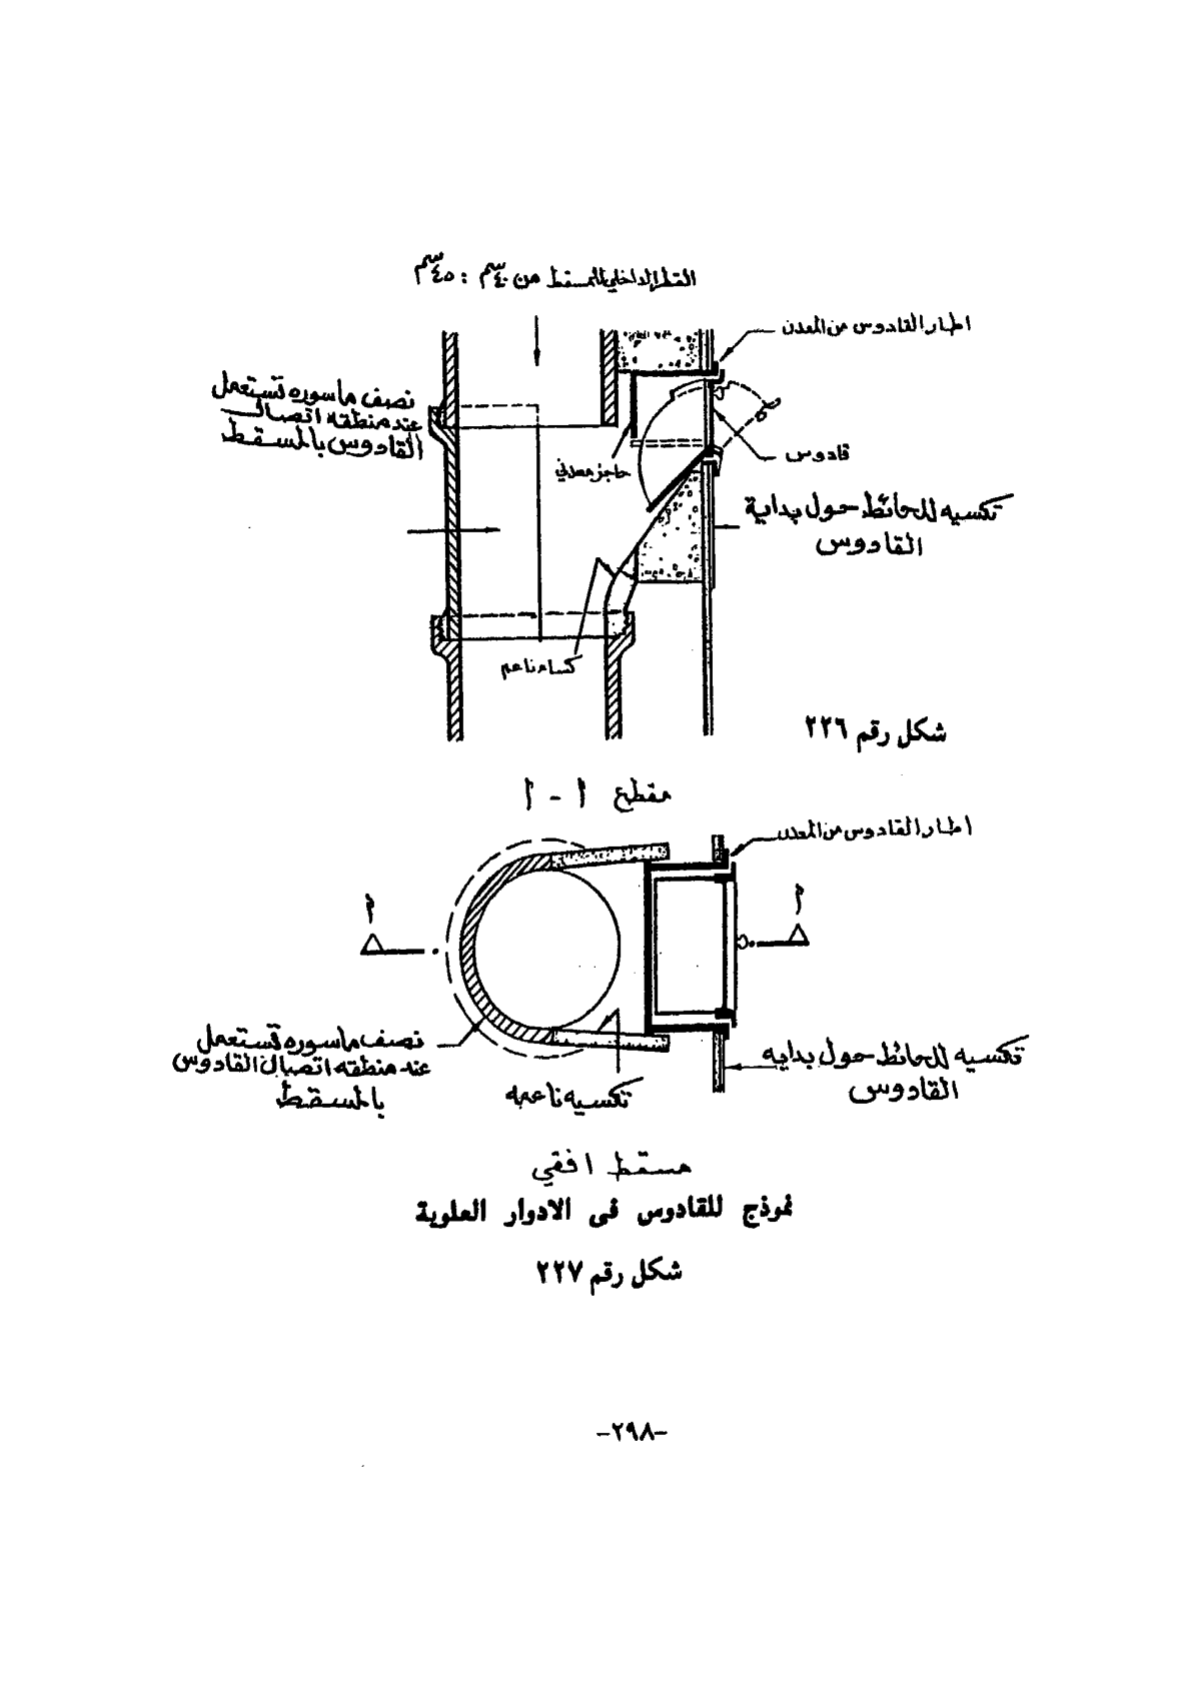 القطر الداخلى للمسقط من ٤٠سم : ٤٥سم
اطار القادوس من المعدن
نصف ماسوره تستعمل
عند منطقه اتصال
القادوس بالمسقط
قادوس
حاجز معدني
تكسيه للحائط حول بداية
القادوس
كساء ناعم
شكل رقم ٢٢٦
مقطع أ - أ
اطار القادوس من المعدن
أ
أ
نصف ماسوره تستعمل
عند منطقه اتصال القادوس
بالمسقط
تكسيه للحائط حول بدايه
القادوس
تكسيه ناعمه
مسقط افقي
نموذج للقادوس فى الادوار العلوية
شكل رقم ٢٢٧
-٢٩٨-